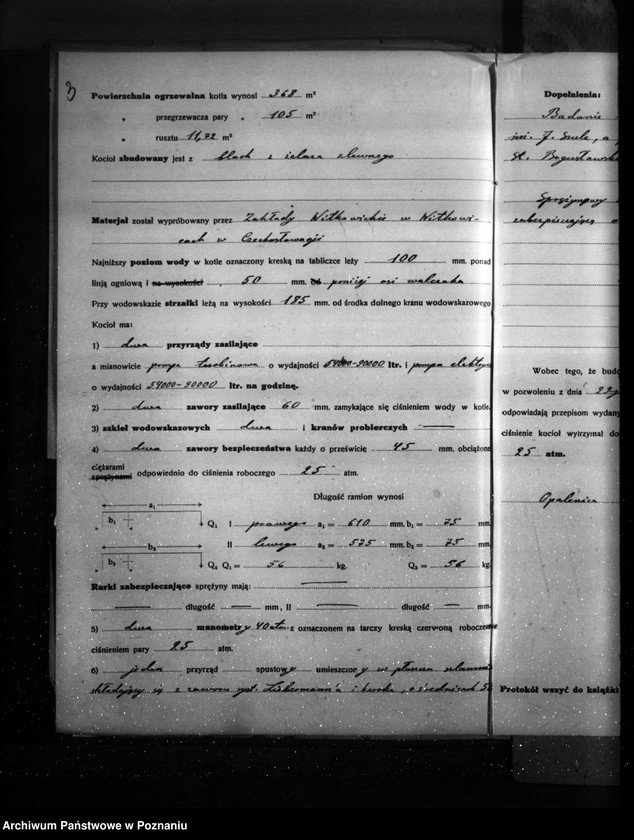 3
Powierzchnia ogrzewalna kotła wynosi 368 m²
" przegrzewacza pary " 105 m²
" rusztu 11,72 m²
Kocioł zbudowany jest z blach z żelaza zlewnego
Materjał został wypróbowany przez Zakłady Witkowickie w Witkowi-
cach w Czechosłowacji
Najniższy poziom wody w kotle oznaczony kreską na tabliczce leży 100 mm. ponad
linją ogniową i na wysokości , 50 mm. od poniżej osi walczaka
Przy wodowskazie strzałki leżą na wysokości 185 mm. od środka dolnego kranu wodowskazowego
Kocioł ma:
1) dwa przyrządy zasilające
a mianowicie pompa turbinowa o wydajności 54000-90000 ltr. i pompa elektr
o wydajności 54000-90000 ltr. na godzinę.
2) dwa zawory zasilające 60 mm. zamykające się ciśnieniem wody w kotle.
3) szkieł wodowskazowych dwa i kranów probierczych —
4) dwa zawory bezpieczeństwa każdy o prześwicie 45 mm. obciążone
ciężarami
sprężynami odpowiednio do ciśnienia roboczego 25 atm.
Długość ramion wynosi
a₁
b₁ Q₁ I prawego a₁ = 610 mm. b₁ = 75 mm.
b₂ II lewego a₂ = 575 mm. b₂ = 75 mm.
b₂ Q₂ Q₁ = 56 kg. Q₂ = 56 kg.
Rurki zabezpieczające sprężyny mają: —
— długość — mm, II — długość — mm.
5) dwa manometry 40 atm z oznaczonem na tarczy kreską czerwoną roboczem
ciśnieniem pary 25 atm.
6) jeden przyrząd spustowy umieszczony w płaszczu
składający się z zaworu syst. i kurka, o średnicach 50
Dopełnienia:
Badanie
inż. J. a
St. Bogusławsk
zabezpieczające o
Wobec tego, że bud
w pozwoleniu z dnia 22
odpowiadają przepisom wydany
ciśnienie kocioł wytrzymał do
25 atm.
Opalenica
Protokół wszyć do książki
Archiwum Państwowe w Poznaniu